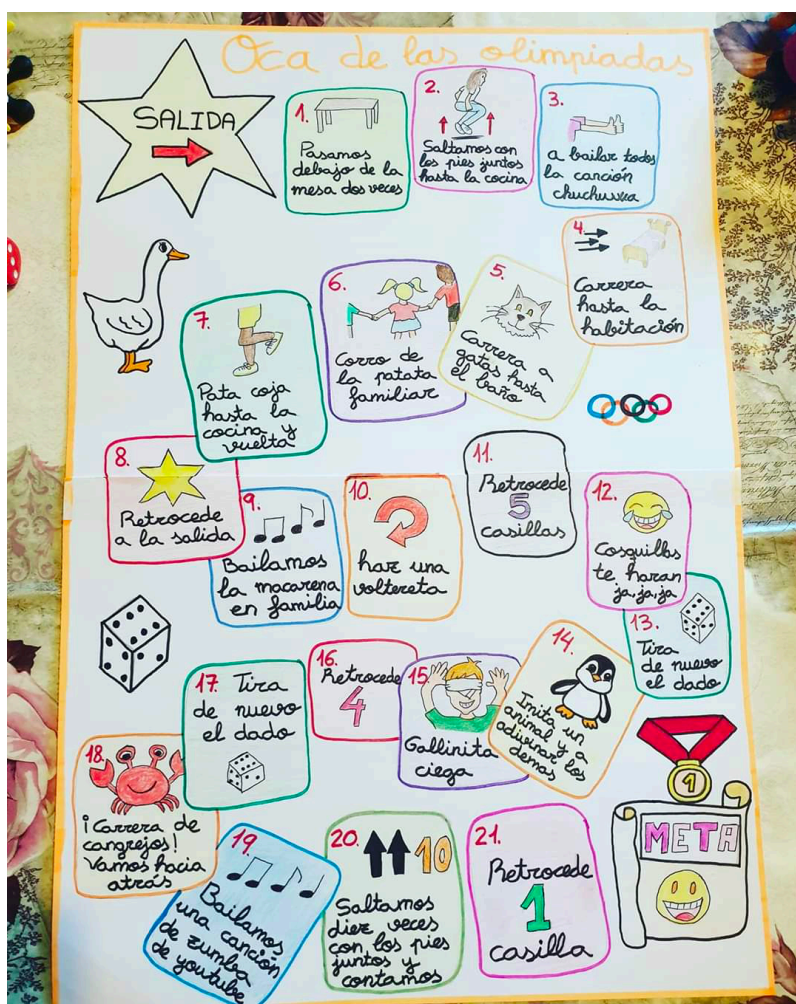 Oca de las olimpiadas
SALIDA
1.
Pasamos
debajo de la
mesa dos veces
2.
Saltamos con
los pies juntos
hasta la cocina
3.
a bailar todos
la canción
chuchuwa
4.
Carrera
hasta la
habitación
5.
Carrera a
gatas hasta
el baño
6.
Corro de
la patata
familiar
7.
Pata coja
hasta la
cocina y
vuelta
8.
Retrocede
a la salida
9.
Bailamos
la macarena
en familia
10.
haz una
voltereta
11.
Retrocede
5
casillas
12.
Cosquillas
te haran
ja, ja, ja
13.
Tira
de nuevo
el dado
14.
Imita un
animal y a
adivinar los
demas
15.
Gallinita
ciega
16.
Retrocede
4
17. Tira
de nuevo
el dado
18.
¡Carrera de
cangrejos!
Vamos hacia
atrás
19.
Bailamos
una canción
de zumba
de youtube
20.
10
Saltamos
diez veces
con los pies
juntos y
contamos
21.
Retrocede
1
casilla
1
META